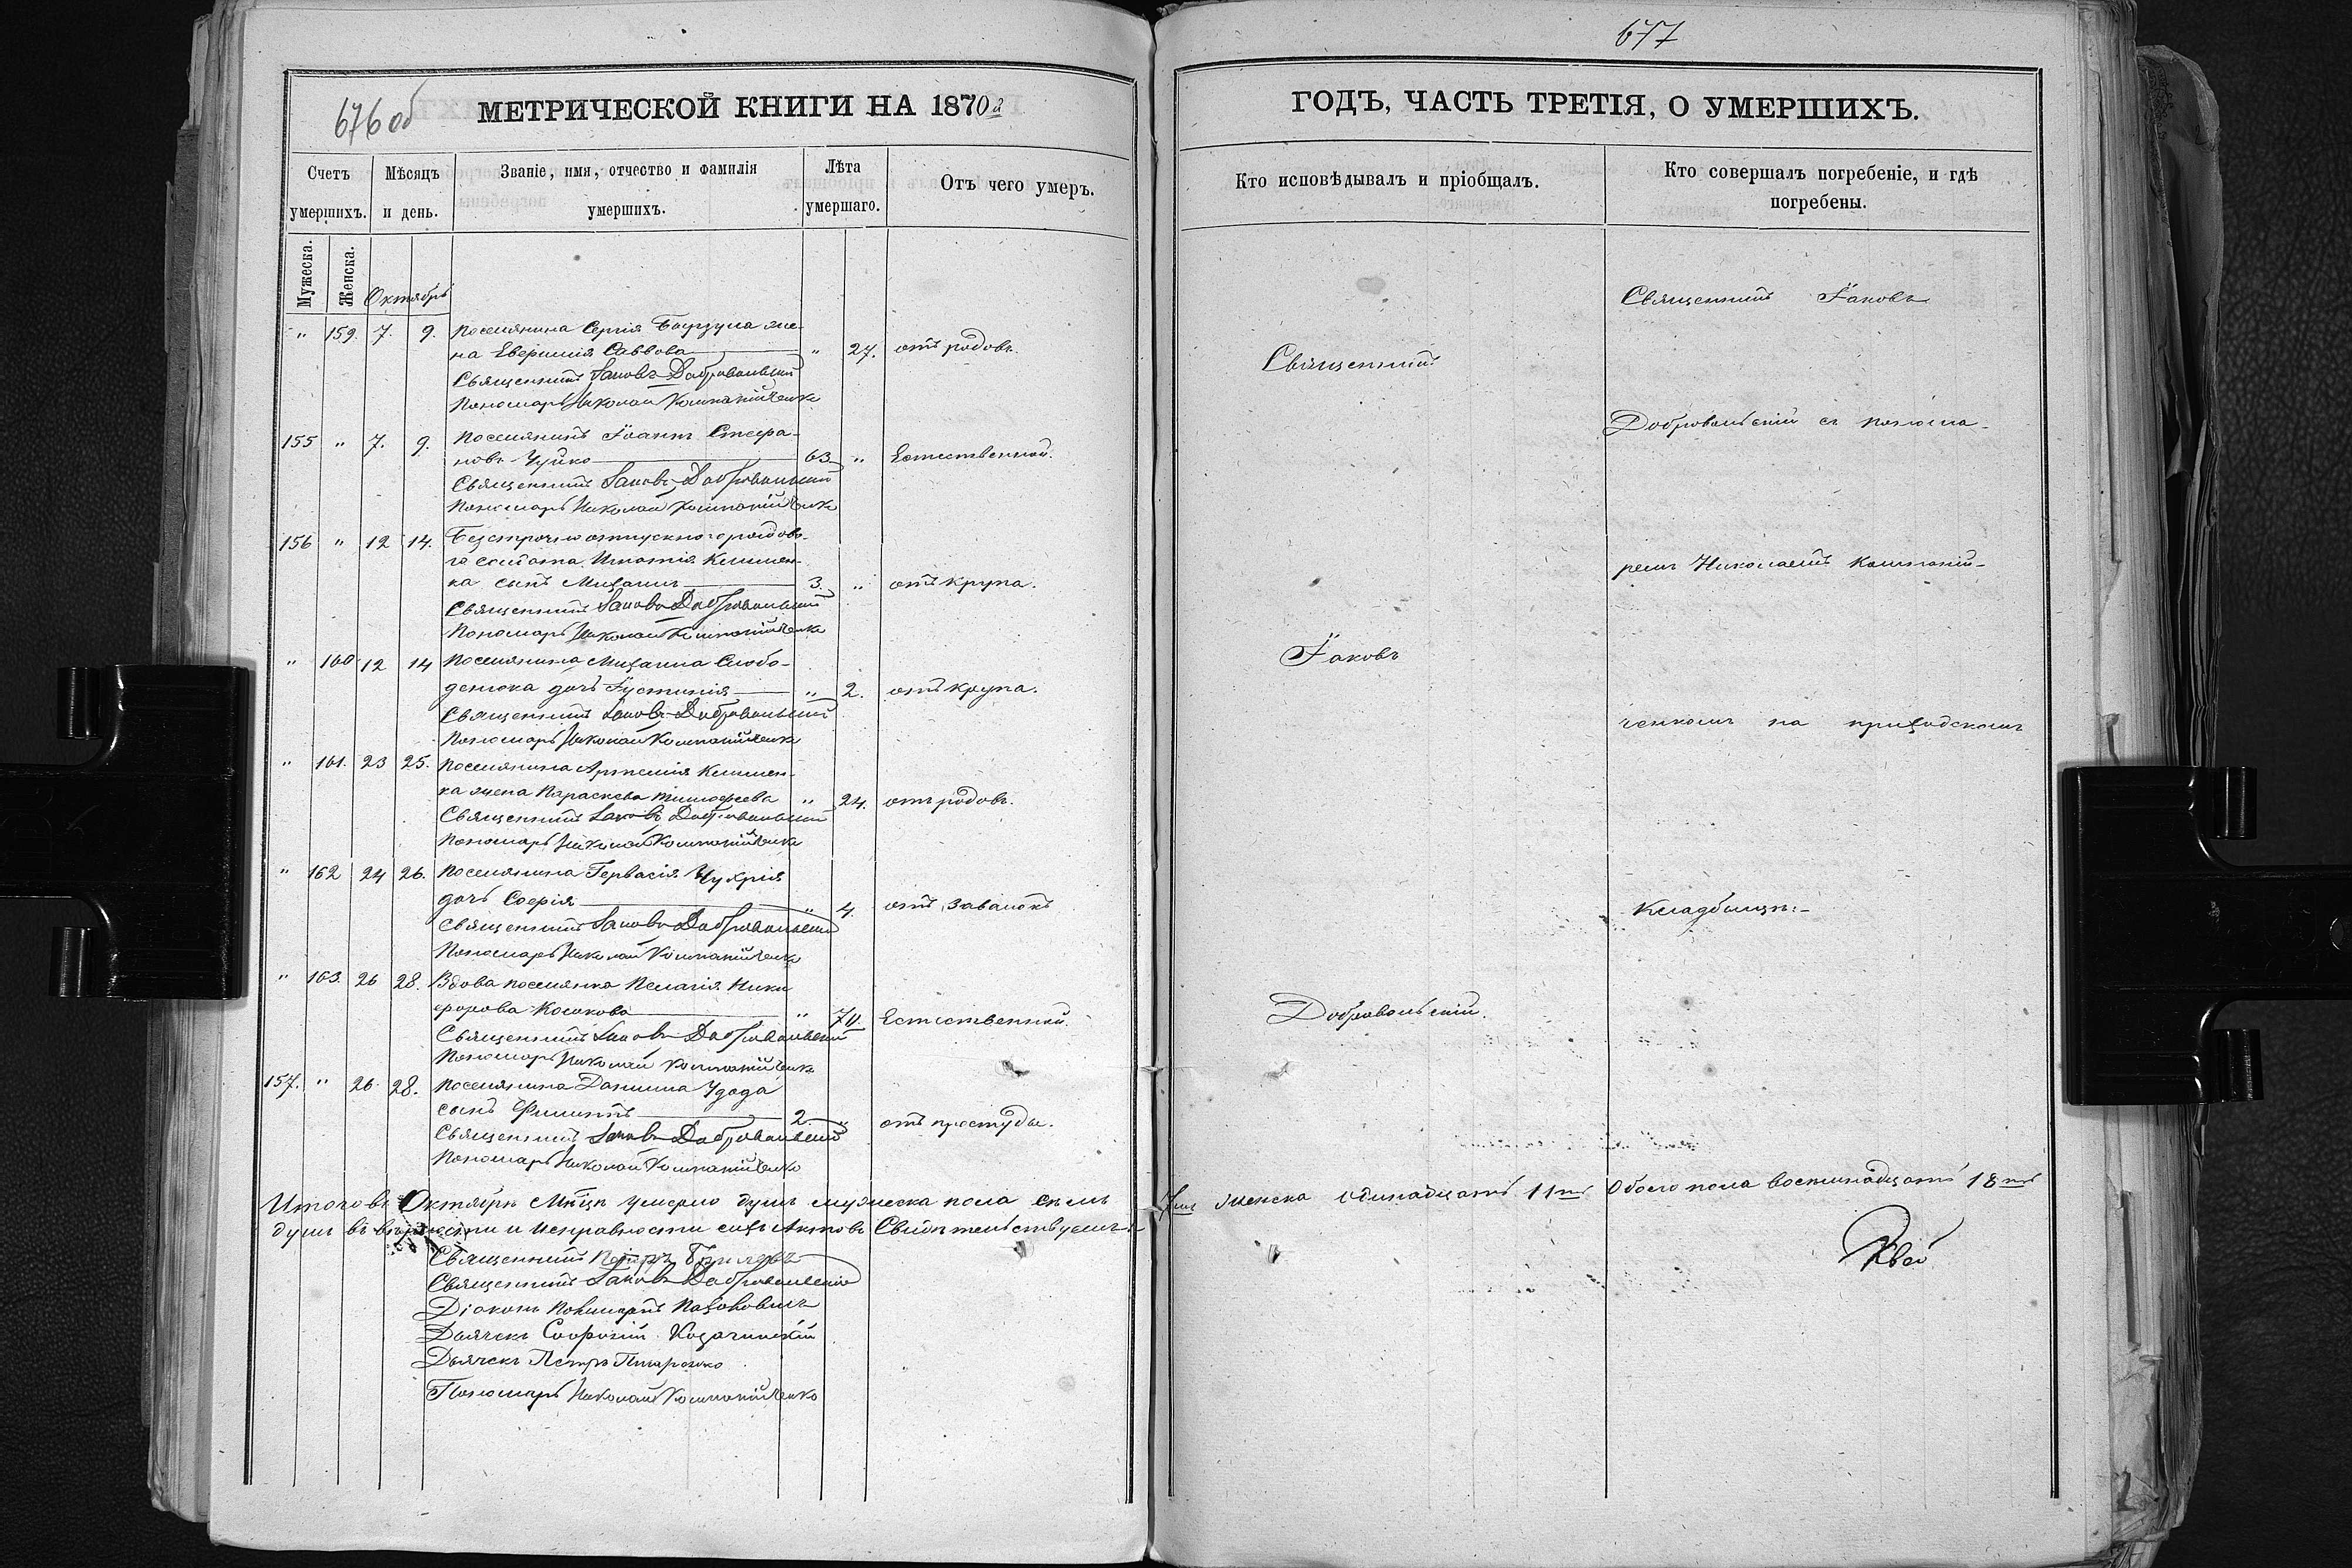 676 об
МЕТРИЧЕСКОЙ КНИГИ НА 1870й
Счетъ умершихъ.
Мѣсяцъ и день.
Званіе, имя, отчество и фамилія умершихъ.
Лѣта умершаго.
Отъ чего умеръ.
Мужеска.
Женска.
Октябрь
" 159. 7. 9. Поселянина Сергія же-
на Евфимія Саввова " 27. отъ родовъ.
Священникъ Іаковъ Добровольскій
Пономарь Николай Компанійченко
155 " 7. 9. Поселянинъ Іоаннъ Стефа-
новъ Чуйко 63 " Естественной.
Священникъ Іаковъ Добровольскій
Пономарь Николай Компанійченко
156 " 12 14. Безсрочно отпускнаго рядова-
го солдата Игнатія Климен-
ка сынъ Михаилъ 3. " отъ крупа.
Священникъ Іаковъ Добровольскій
Пономарь Николай Компанійченко
" 160 12 14 Поселянина Михаила Слобо-
денюка дочь Іустинія " 2. отъ крупа.
Священникъ Іаковъ Добровольскій
Пономарь Николай Компанійченко
" 161. 23 25. Поселянина Артемія Климен-
ка жена Параскева Тимофеева " 24. отъ родовъ.
Священникъ Іаковъ Добровольскій
Пономарь Николай Компанійченко
" 162 24 26. Поселянина Гервасія Чухрія
дочь Софія " 4. отъ завалокъ
Священникъ Іаковъ Добровольскій
Пономарь Николай Компанійченко
" 163. 26 28. Вдова поселянка Пелагія Ники
форова Косякова " 70. Естественной.
Священникъ Іаковъ Добровольскій
Пономарь Николай Компанійченко
157. " 26. 28. Поселянина Даниила Удода
сынъ Филиппъ 2. " отъ простуды.
Священникъ Іаковъ Добровольскій
Пономарь Николай Компанійченко
Итого въ Октябрѣ Мѣсцѣ умерло душъ мужеска пола семь
душъ въ вѣрности и исправности сихъ Актовъ Свидѣтельствуемъ:
Священникъ Петръ
Священникъ Іаковъ Добровольскій
Діаконъ
Дьячекъ Софоній Козачинскій
Дьячекъ Петръ
Пономарь Николай Компанійченко
677
ГОДЪ, ЧАСТЬ ТРЕТІЯ, О УМЕРШИХЪ.
Кто исповѣдывалъ и пріобщалъ.
Кто совершалъ погребеніе, и гдѣ погребены.
Священникъ
Іаковъ
Добровольскій.
Священникъ Іаковъ
Добровольскій съ понома-
ремъ Николаемъ Компаній-
ченкомъ на приходскомъ
кладбищѣ:-
7мь женска одинадцать 11ть Обоего пола восемнадцать 18ть